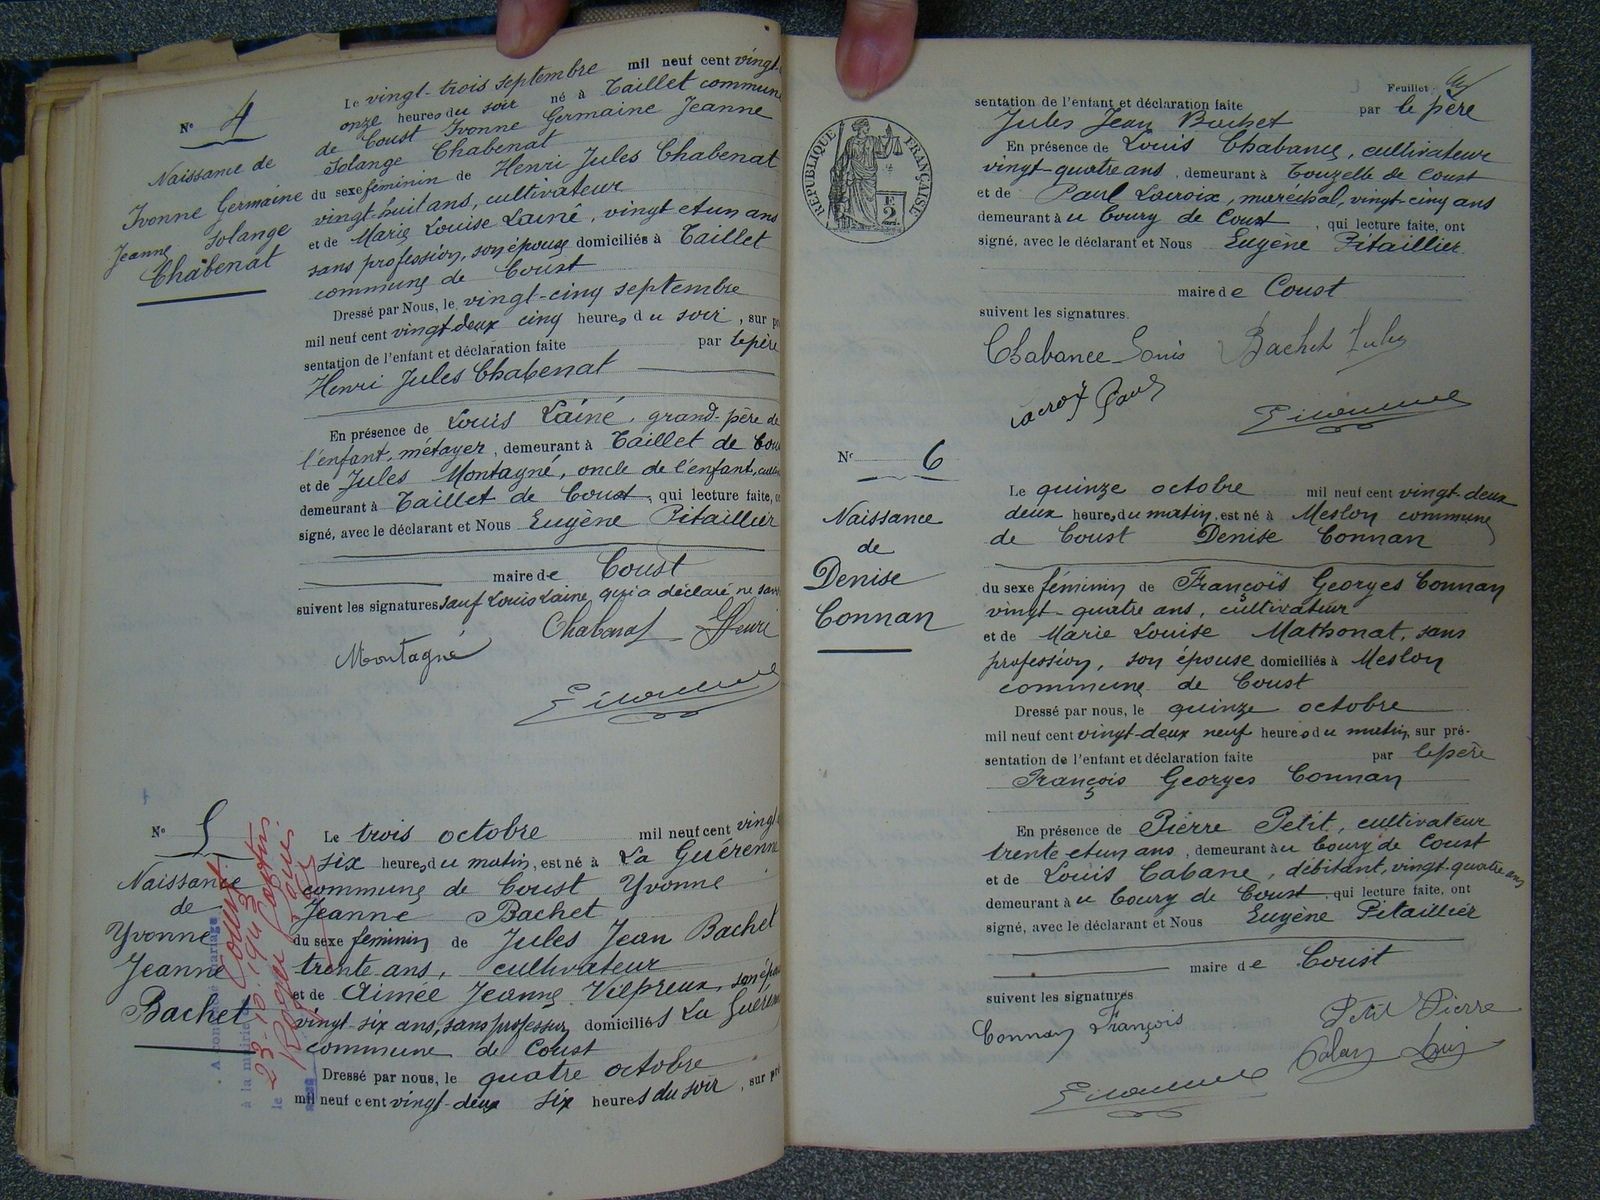 N° 4
Naissance de
Yvonne Germaine
Jeanne Solange
Chabenat
Le vingt-trois septembre mil neuf cent vingt-
onze heures du soir né à Taillet commune
de Coust Yvonne Germaine Jeanne
Solange Chabenat
du sexe féminin de Henri Jules Chabenat
vingt-huit ans, cultivateur
et de Marie Louise Lainé, vingt et un ans
sans profession, son épouse domiciliés à Taillet
commune de Coust
Dressé par Nous, le vingt-cinq septembre
mil neuf cent vingt-deux cinq heures du soir, sur p
sentation de l'enfant et déclaration faite par le père
Henri Jules Chabenat
En présence de Louis Lainé, grand-père de
l'enfant, métayer, demeurant à Taillet de Cou
et de Jules Montagné, oncle de l'enfant,
demeurant à Taillet de Coust, qui lecture faite,
signé, avec le déclarant et Nous Eugène Pitaillier
maire de Coust
suivent les signatures sauf Louis Laine qui a déclaré ne
Chabenat Henri
Montagné
N° 5
Naissance
de
Yvonne
Jeanne
Bachet
Le trois octobre mil neuf cent vingt
six heures du matin, est né à La Guérenne
commune de Coust Yvonne
Jeanne Bachet
du sexe féminin de Jules Jean Bachet
trente ans, cultivateur
et de Aimée Jeanne Vilpreux, son épou
vingt-six ans, sans profession domiciliés La Guérenn
commune de Coust
Dressé par nous, le quatre octobre
mil neuf cent vingt-deux six heures du soir, sur pré
mariage
à la mairie
le
Coust
Feuillet
RÉPUBLIQUE FRANÇAISE
2
sentation de l'enfant et déclaration faite par le père
Jules Jean Bachet
En présence de Louis Chabance, cultivateur
vingt-quatre ans, demeurant à Touzelle de Coust
et de Paul Lacroix, maréchal, vingt-cinq ans
demeurant au bourg de Coust, qui lecture faite, ont
signé, avec le déclarant et Nous Eugène Pitaillier
maire de Coust
suivent les signatures.
Chabance Louis Bachet Jules
Lacroix Paul
N° 6
Naissance
de
Denise
Connan
Le quinze octobre mil neuf cent vingt-deux
deux heures du matin, est né à Meslon commune
de Coust Denise Connan
du sexe féminin de François Georges Connan
vingt-quatre ans, cultivateur
et de Marie Louise Mathonat, sans
profession, son épouse domiciliés à Meslon
commune de Coust
Dressé par nous, le quinze octobre
mil neuf cent vingt-deux neuf heures du matin, sur pré-
sentation de l'enfant et déclaration faite par le père
François Georges Connan
En présence de Pierre Petit, cultivateur
trente et un ans, demeurant au bourg de Coust
et de Louis Cabane, débitant, vingt-quatre ans
demeurant au bourg de Coust qui lecture faite, ont
signé, avec le déclarant et Nous Eugène Pitaillier
maire de Coust
suivent les signatures
Connan François Petit Pierre